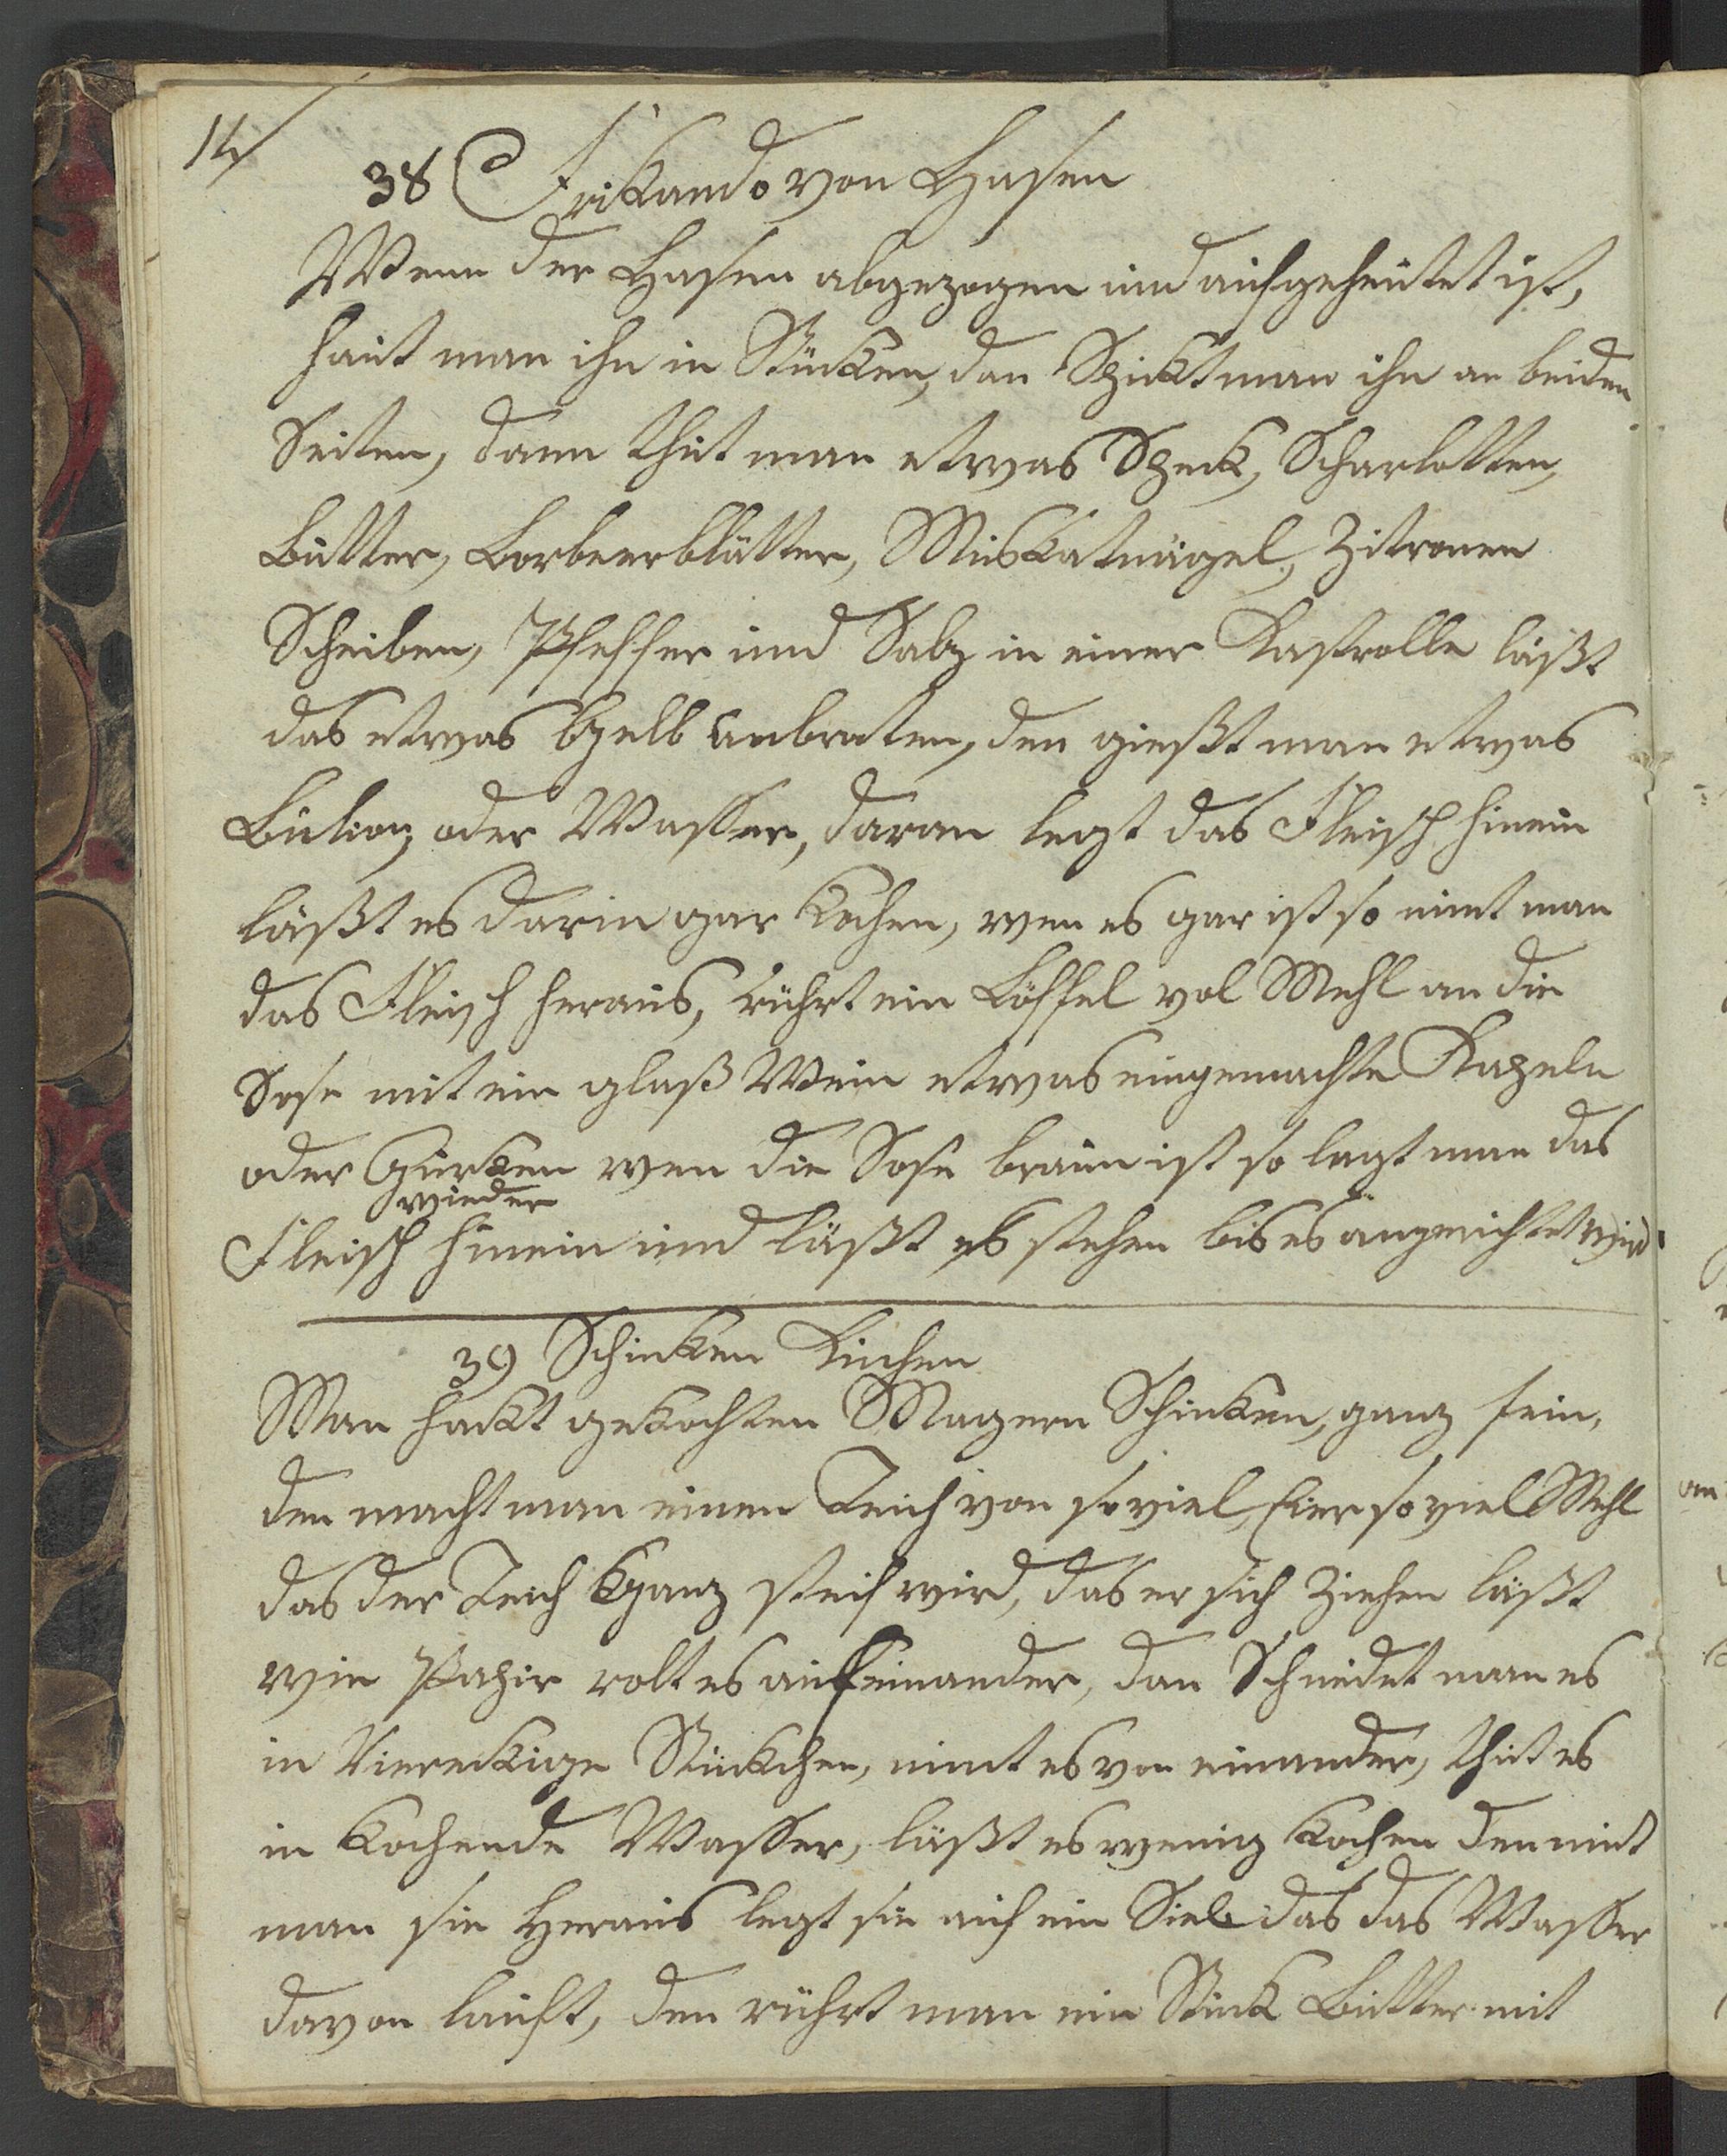 14
38 Frikando von Hasen
Wenn der Hasen abgezogen und aufgeheutet ist,
haut man ihn in Stücken, dan Spickt man ihn an beiden
Seiten, dann thut man etwas Speck, Scharlotten,
Butter, Lorbeerblätter, Muskatnägel, Zitronen
Scheiben, Pfeffer und Salz in einer Kastrolle läßt
das etwas Gelb anbraten, den gießt man etwas
Bulion oder Wasser, daran legt das Fleisch hinein
läßt es darin gar kochen, wen es gar ist so nimt man
das Fleisch heraus, rührt ein Löffel vol Mehl an die
Sose mit ein glaß Wein etwas eingemachte Kapeln
oder Gurken wen die Sose braun ist so legt man das
wieder
Fleisch hinein und läßt es stehen bis es angerichtet wird.
39 Schinken Kuchen
Man hackt gekochten Magern Schinken, ganz fein,
den macht man einen Teich von so viel, Eier so viel Mehl
das der Teich Ganz steif wird, das er sich Ziehen läßt
wie Papir rolt es aufeinander, dan Schneidet man es
in Viereckige Stückchen, nimt es von einander, thut es
in kochende Wasser, läßt es wenig kochen den nimt
man sie Heraus legt sie auf ein Sieb das das Wasser
davon läuft, den rührt man ein Stück Butter mit
an